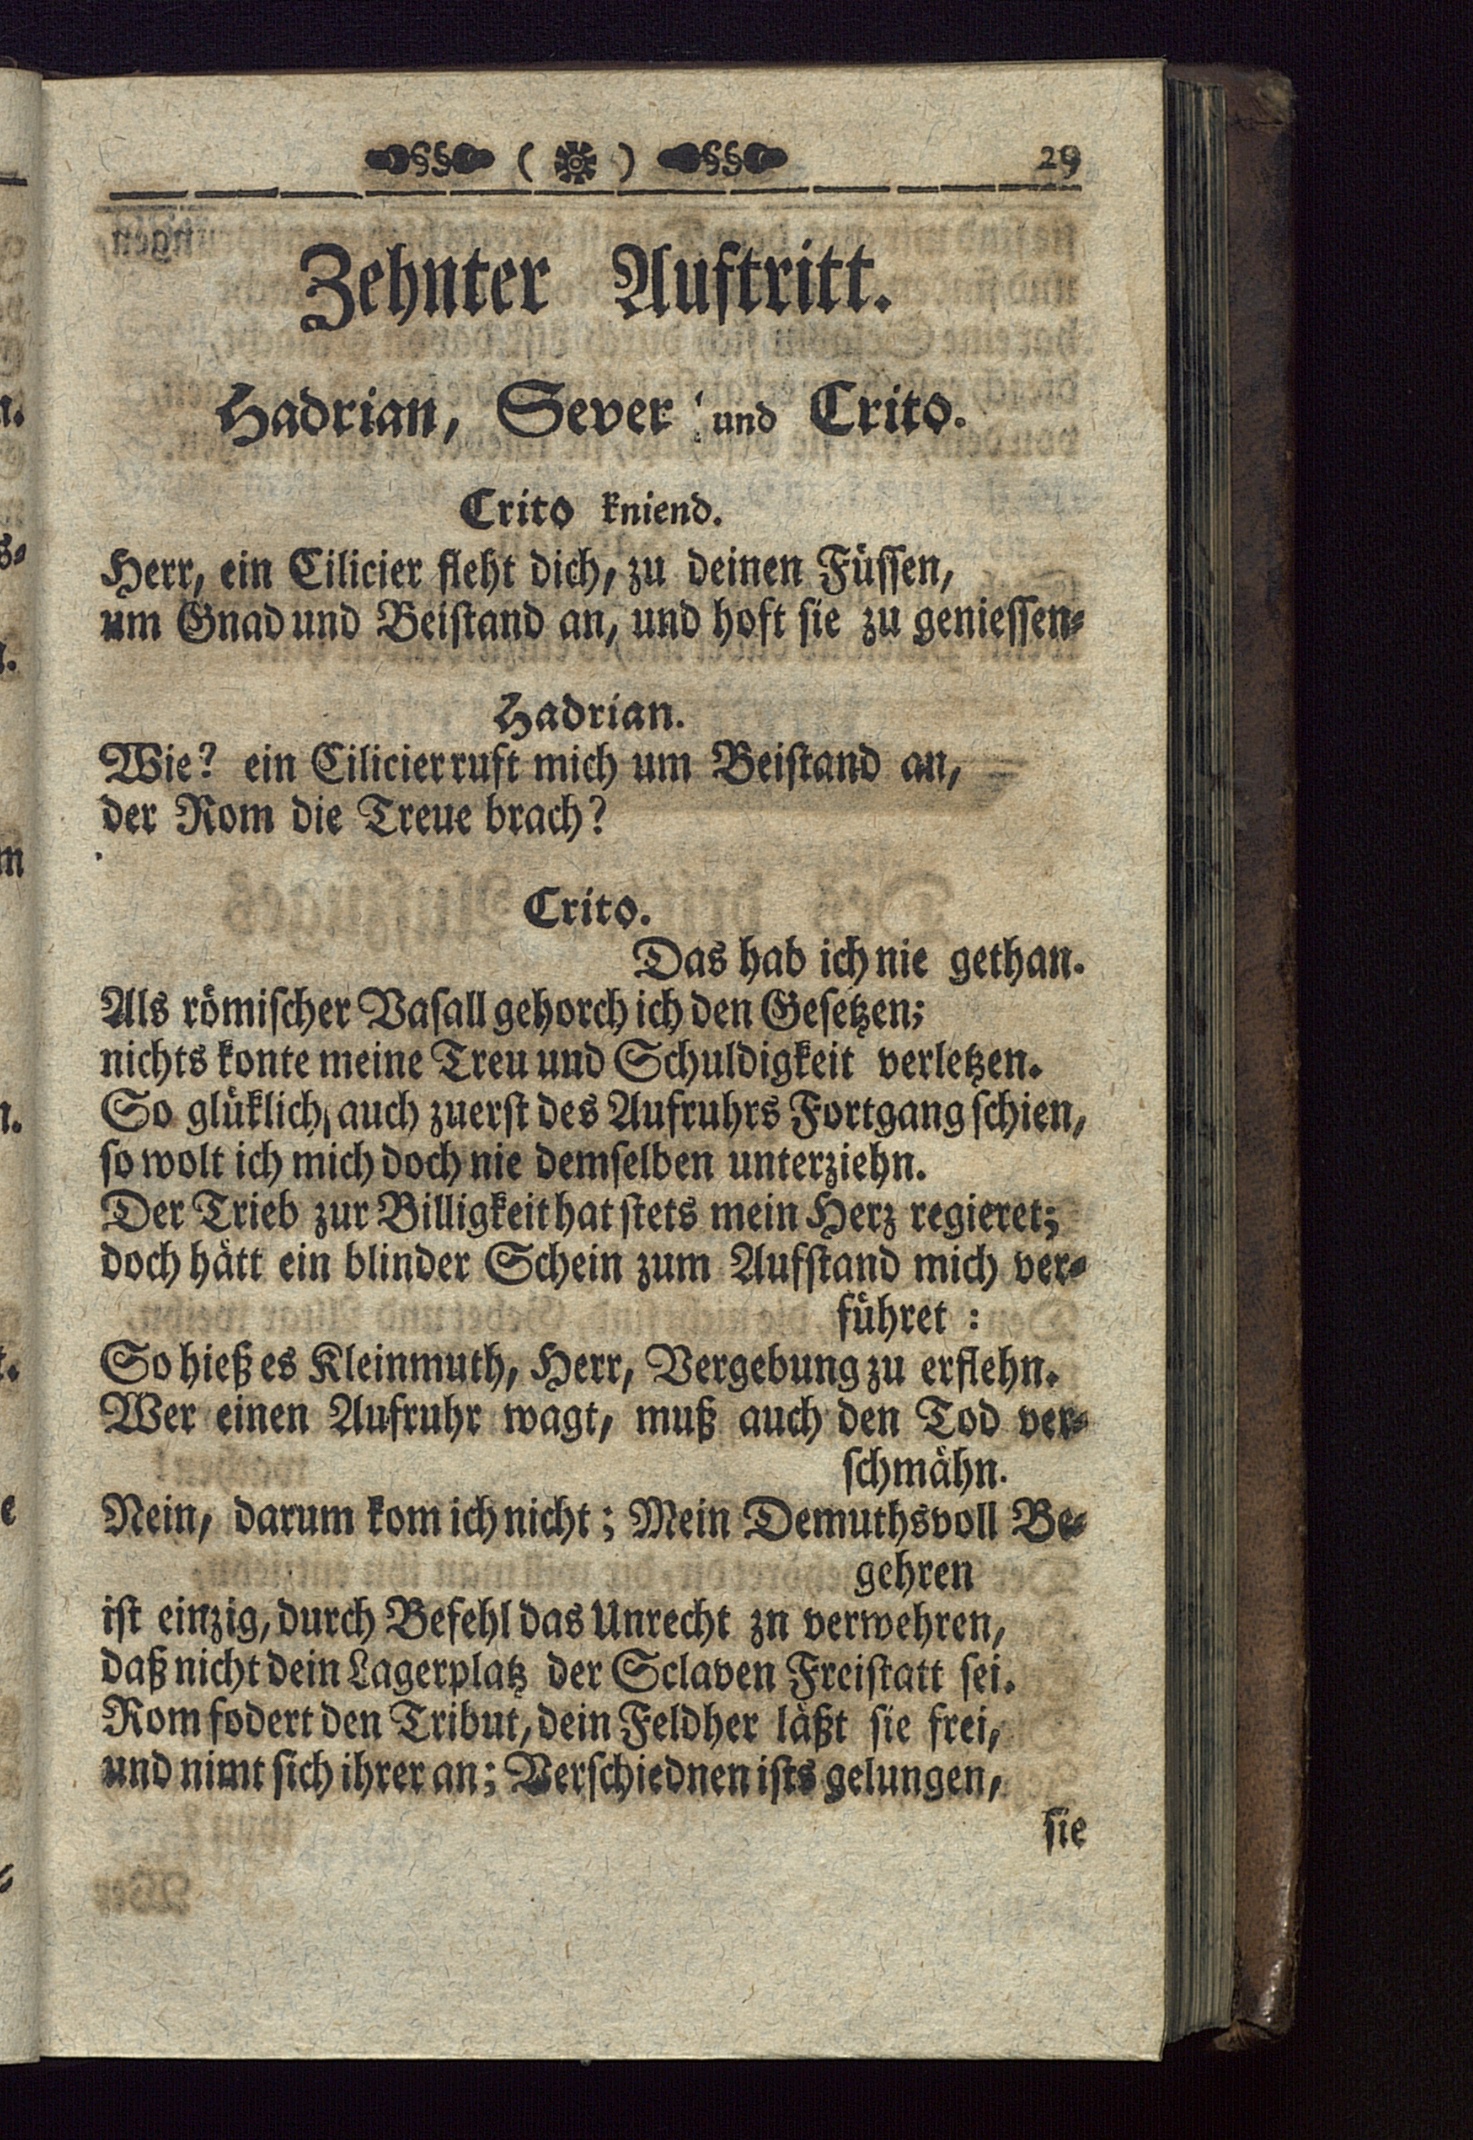 29
Zehnter Auftritt.
Hadrian, Sever und Crito.
Crito kniend.
Herr, ein Cilicier fleht dich, zu deinen Füssen,
um Gnad und Beistand an, und hoft sie zu geniessen-
Hadrian.
Wie? ein Cilicier ruft mich um Beistand an,
der Rom die Treue brach?
Crito.
Das hab ich nie gethan.
Als römischer Vasall gehorch ich den Gesetzen;
nichts konte meine Treu und Schuldigkeit verletzen.
So glüklich, auch zuerst des Aufruhrs Fortgang schien,
so wolt ich mich doch nie demselben unterziehn.
Der Trieb zur Billigkeit hat stets mein Herz regieret;
doch hätt ein blinder Schein zum Aufstand mich ver-
führet :
So hieß es Kleinmuth, Herr, Vergebung zu erflehn.
Wer einen Aufruhr wagt, muß auch den Tod ver-
schmähn.
Nein, darum kom ich nicht; Mein Demuthsvoll Be-
gehren
ist einzig, durch Befehl das Unrecht zn verwehren,
daß nicht dein Lagerplatz der Sclaven Freistatt sei.
Rom fodert den Tribut, dein Feldher läßt sie frei,
und nimt sich ihrer an; Verschiednen ists gelungen,
sie